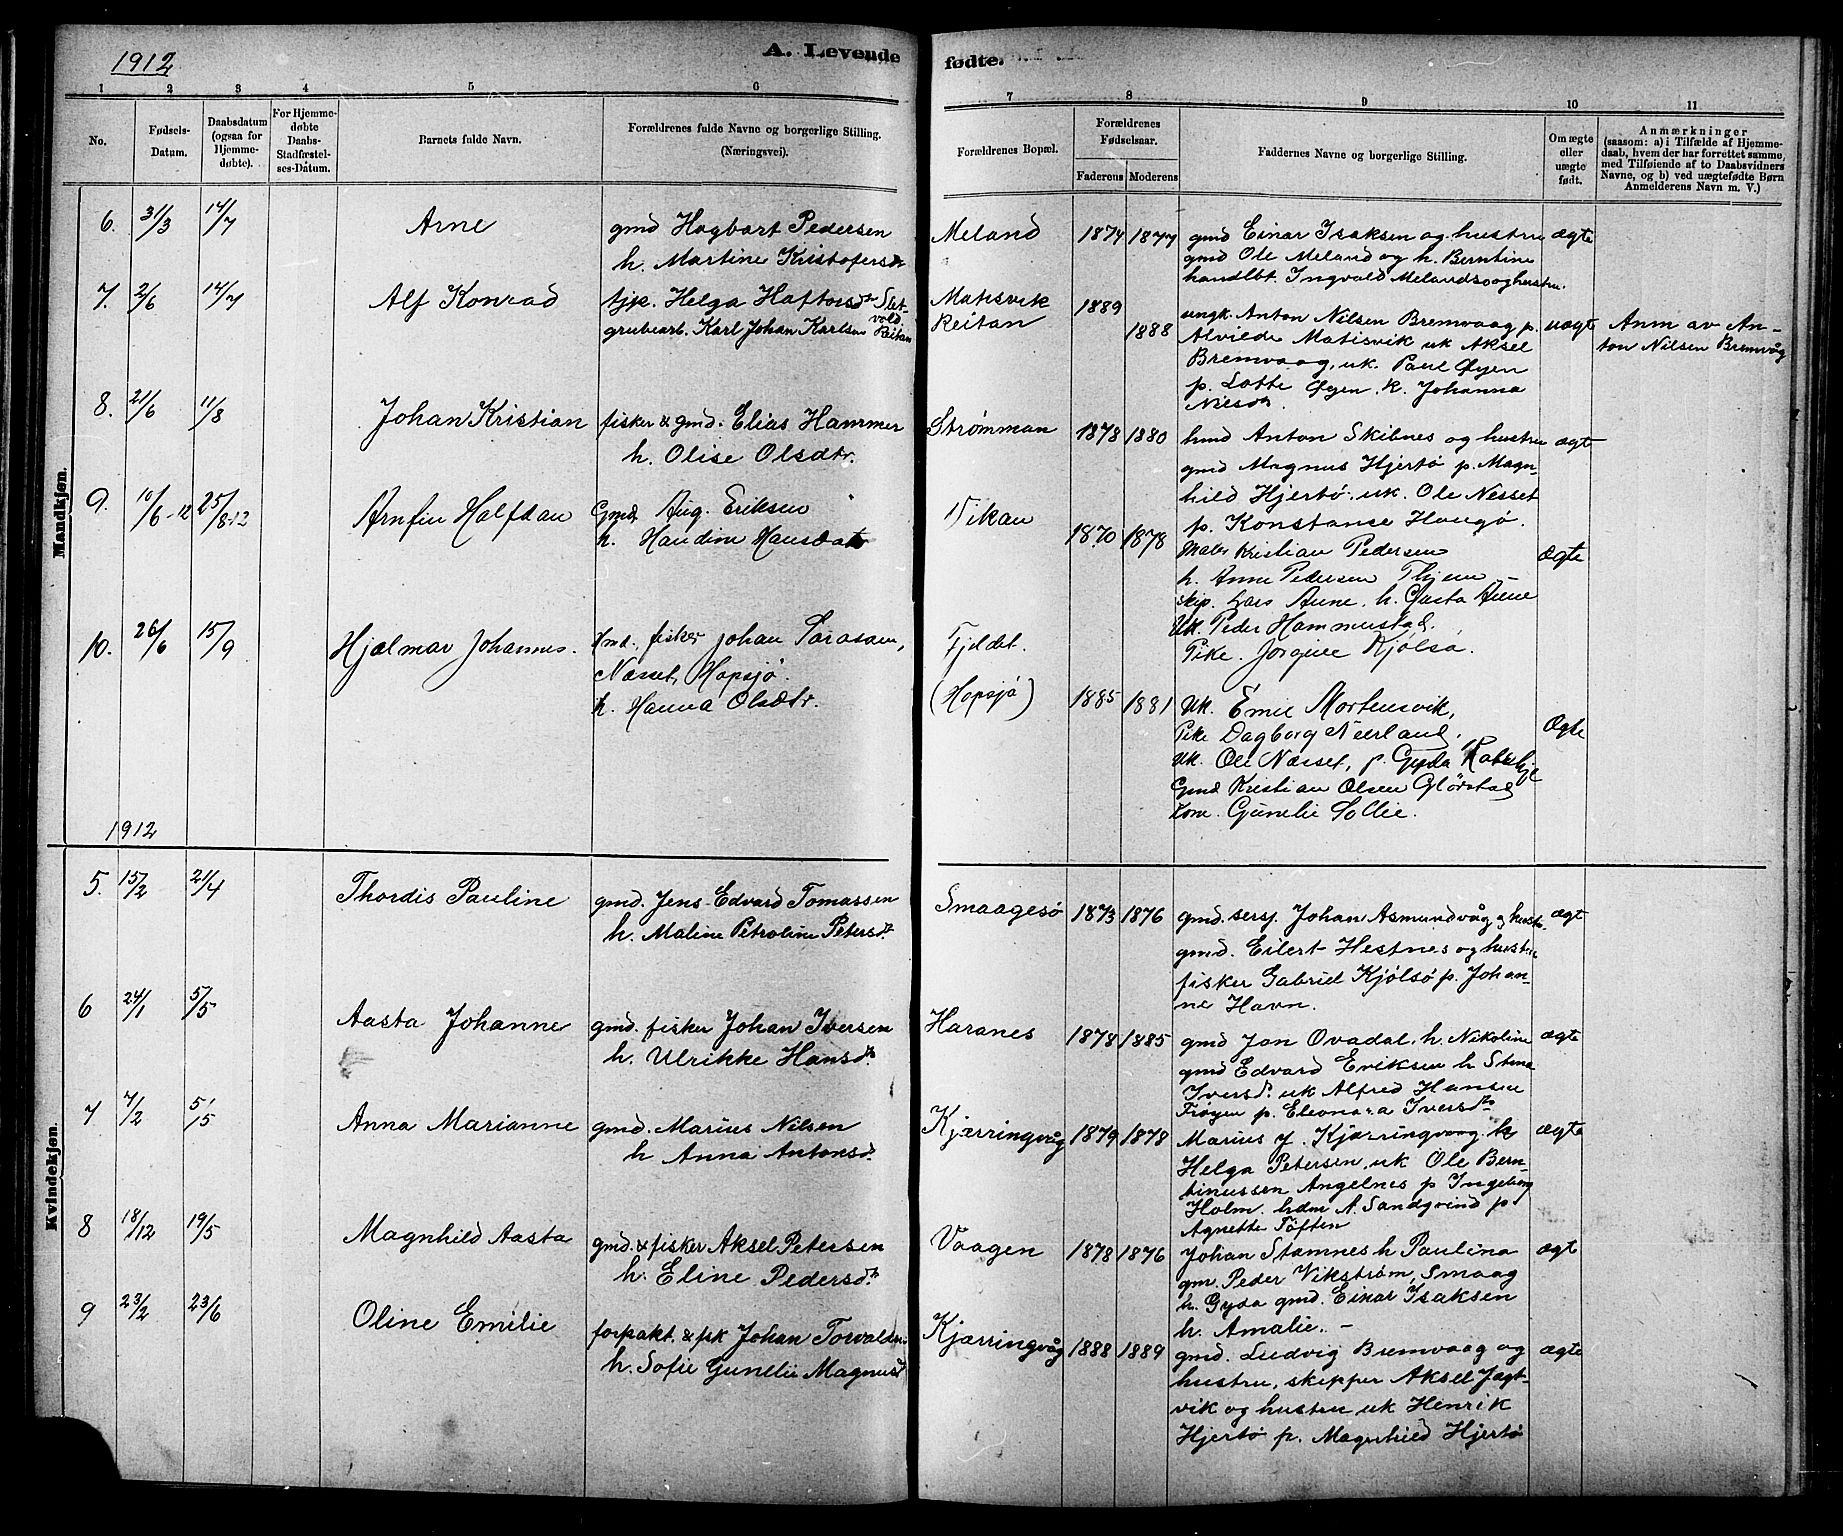 1912
A. Levende fødte.
1 2 3 4 5 6 7 8 9 10 11
No.
Fødsels-
Datum.
Daabsdatum
(ogsaa for
Hjemme-
døbte).
For Hjemme-
døbte
Daabs-
Stadfæstel-
ses-Datum.
Barnets fulde Navn.
Forældrenes fulde Navne og borgerlige Stilling.
(Næringsvei).
Forældrenes Bopæl.
Forældrenes
Fødselsaar.
Faderens Moderens
Faddernes Navne og borgerlige Stilling.
Om ægte
eller
uægte
født.
Anmærkninger
(saasom: a) i Tilfælde af Hjemme-
daab, hvem der har forrettet samme,
med Tilføiende af to Daabsvidners
Navne, og b) ved uægtefødte Børn
Anmelderens Navn m. V.)
Mandkjøn.
6. 31/3 14/7 Arne
gmd Hagbart Pedersen
h. Martine Kristofersdr
Meland 1874 1877
gmd Einar Isaksen og hustru ægte
gmd Ole Meland og h. Berntine
handlbt. Ingvald Melandsø og hustru.
7. 2/6 14/7 Alf Konrad
tjk. Helga Haftorsdr Slet-
vold
grubearb. Karl Johan Karlsen Reitan
Matisvik
Reitan
1889
1888
ungk. Anton Nilsen Bremvaag p. uægt
Alvilde Matisvik uk Aksel
Bremvaag, uk. Paul Øyen
p. Lotte Øyen. k. Johanna
Nilsdr.
Anm av An-
ton Nilsen Bremvåg
8. 21/6 11/8 Johan Kristian
fisker & gmd. Elias Hammer
h. Olise Olsdtr.
Strømman 1878 1880
hmd Anton Skibnes og hustru ægte
gmd Magnus Hjertø p. Magn-
hild Hjertø. uk. Ole Nesset
p. Konstanse Haugø.
9. 10/6-12 25/8-12 Arnfin Halfdan
Gmd. Aug. Eriksen
h. Handine Hansdat
Vikan 1870 1878
Maler Kristian Pedersen Ægte
h. Anne Pedersen Thjem –
skip. Lars Aune. h. Aasta Aune
Uk. Peder Hammerstad.
Pike. Jørgine Kjølsø.
10. 26/6 15/9 Hjalmar Johannes.
Hmd., fisker Johan Larasen,
Næsset, Hopsjø.
h. Hanna Olsdtr.
Fjeldet.
(Hopsjø) 1885 1881
Uk. Emil Mortensvik,
Pike Dagborg Neerland.
Uk. Ole Næsset, p. Gyda
Gmd Kristian Olsen Glørstad
Gunelie Sollie.
Ægte
1912
Kvindekjøn.
5. 15/2 21/4 Thordis Pauline
gmd. Jens Edvard Tomassen
h. Maline Petroline Petersdr.
Smaagesø 1873 1876
gmd. sersj. Johan Asmundvåg og hustru ægt
gmd. Eilert Hestnes og hustru
fisker Gabriel Kjølsø p. Johan-
ne Havn.
6 24/1 5/5 Aasta Johanne
gmd. fisker Johan Iversen
h. Ulrikke Hansdr.
Haranes 1878 1885
gmd Jon Ovadal. h. Nikoline ægte
gmd Edvard Eriksen h Stina
Iversd. uk Alfred Hansen
Frøyen p. Eleonora Iversdtr
7 7/2 5/5 Anna Marianne
gmd. Marius Nilsen
h Anna Antonsdr.
Kjærringvåg 1879 1878
Marius J. Kjærringvaag h ægte
Helga Petersen. uk Ole Bern-
tinussen Angelnes p Ingeborg
Holm. hdm A. Sandgrind p
Agnette Tøften
8 18/12 19/5 Magnhild Aasta
gmd. & fisker Aksel Petersen
h. Eline Pedersdr.
Vaagen 1878 1876
Johan Stamnes h Paulina ægt
gm. Peder Vikstrøm, Smaag
h. Gyda gmd. Einar Isaksen
h. Amalie. –
9 23/2 23/6 Oline Emilie
forpakt. & fsk Johan Torvaldsen
h. Sofie Gunelie Magnusd
Kjærringvåg 1888 1889
gmd. Ludvig Bremvaag og ægte
hustru, skipper Aksel Jægt-
vik og hustru uk Henrik
Hjertø p. Magnhild Hjertø